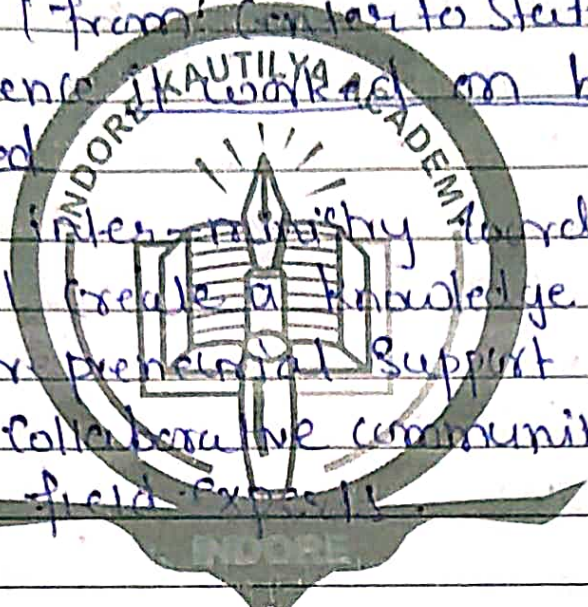 [from: Center to Stat
ence it worked on b
ed
inter-ministry coord
l create a knowledge
r prenerial Support
Collaborative communi
field experts.
INDORE KAUTILYA ACADEMY
INDORE